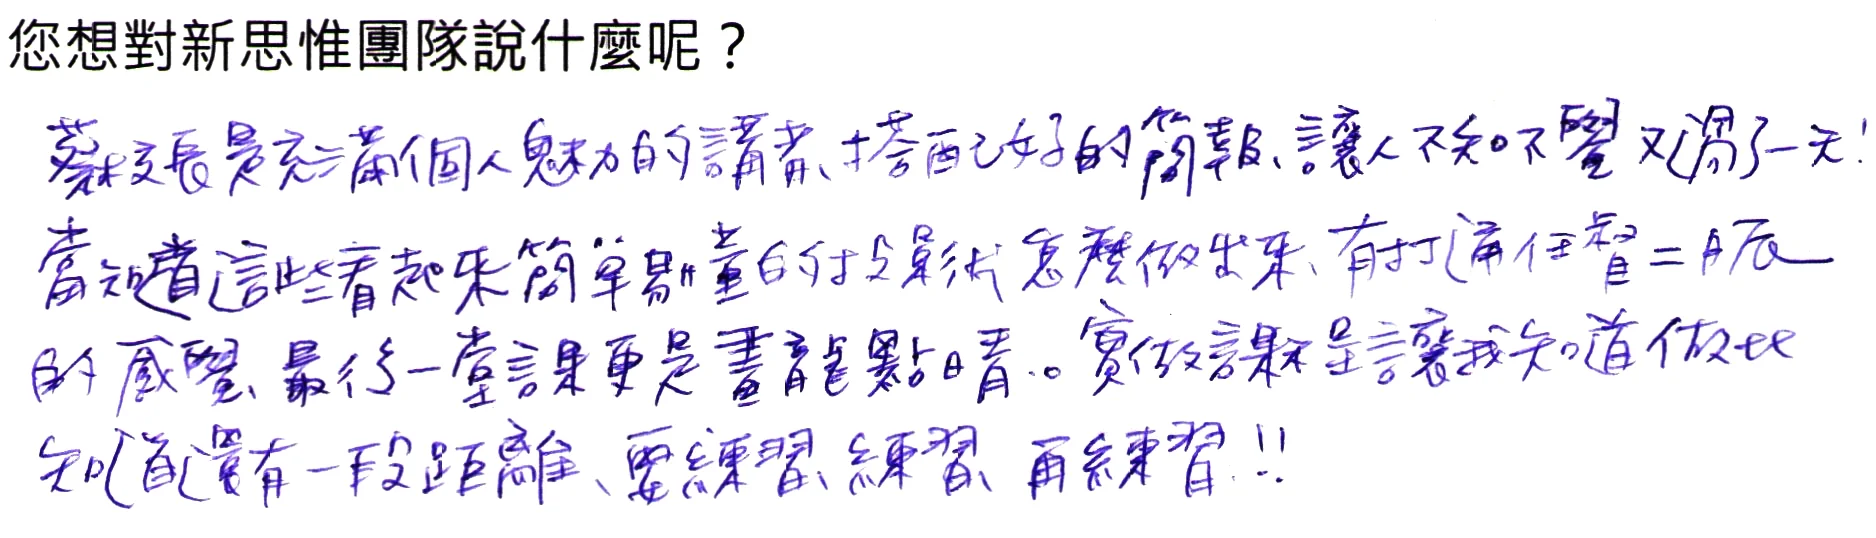 您想對新思惟團隊說什麼呢？
蔡校長是充滿個人魅力的講者、搭配好的簡報、讓人不知不覺又過了一天！
當知道這些看起來簡單易懂的投影術怎麼做出來、有打通任督二脈
的感覺、最後一堂課更是畫龍點睛。實做課是讓我知道做比
知道還有一段距離、要練習、練習、再練習!!